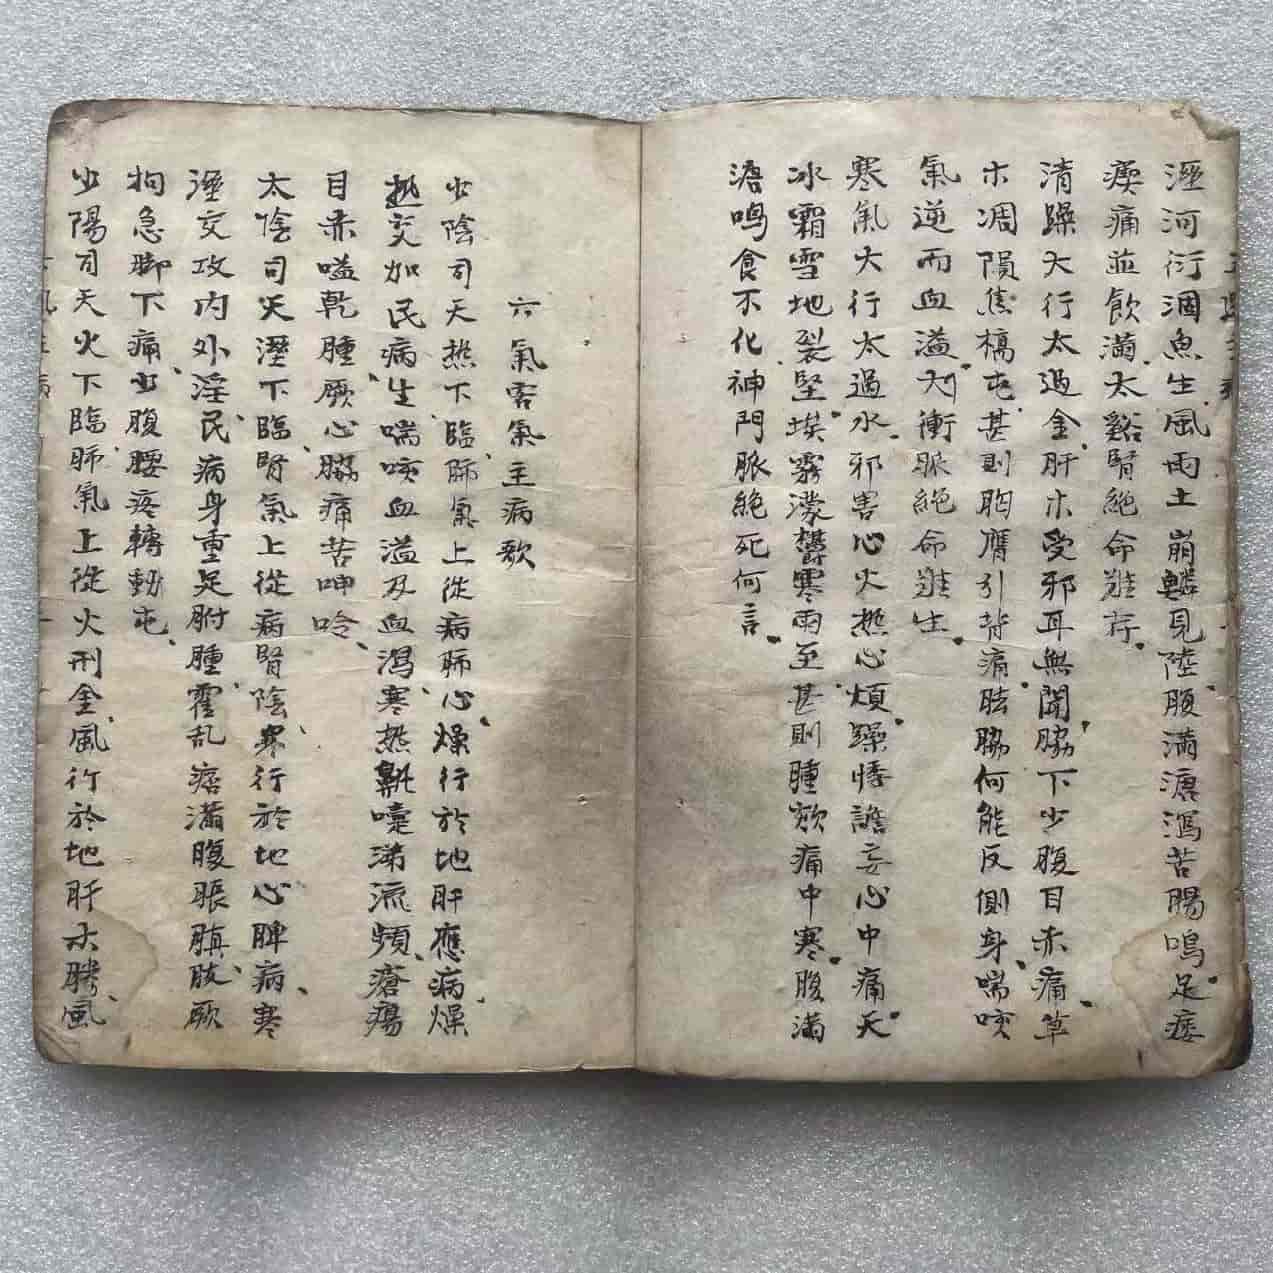 溼河衍涸魚生風雨土崩鱗見陸腹滿溏瀉苦腸鳴足痿
痿痛並飲滿太谿腎絕命難存
清躁大行太過金肝木受邪耳無聞脇下少腹目赤痛草
木凋隕焦槁屯甚則胸膺引背痛胠脇何能反側身喘咳
氣逆而血溢太衝脈絕命難生
寒氣大行太過水邪害心火熱心煩躁悸譫妄心中痛天
冰霜雪地裂堅埃霧濛欝寒雨至甚則腫欬痛中寒腹滿
溏鳴食不化神門脈絕死何言
六氣客氣主病歌
少陰司天熱下臨肺氣上從病肺心燥行於地肝應病燥
熱交加民病生喘咳血溢及血瀉寒熱鼽嚏涕流頻瘡瘍
目赤嗌乾腫厥心脇痛苦呻吟
太陰司天溼下臨腎氣上從病腎陰寒行於地心脾病寒
溼交攻內外淫民病身重足胕腫霍乱痞滿腹脹䐜肢厥
拘急脚下痛少腹腰疼轉動屯
少陽司天火下臨肺氣上從火刑金風行於地肝木勝風